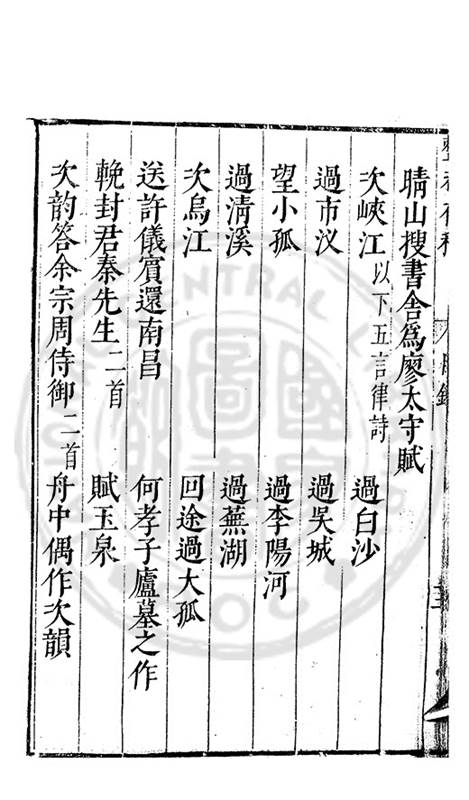 晴山搜書舍爲廖太守賦
次峽江以下五言律詩 過白沙
過市汊 過吳城
望小孤 過李陽河
過清溪 過蕪湖
次烏江 回途過大孤
送許儀賓還南昌 何孝子廬墓之作
輓封君秦先生二首 賦玉泉
次韵答余宗周侍御二首 舟中偶作次韻